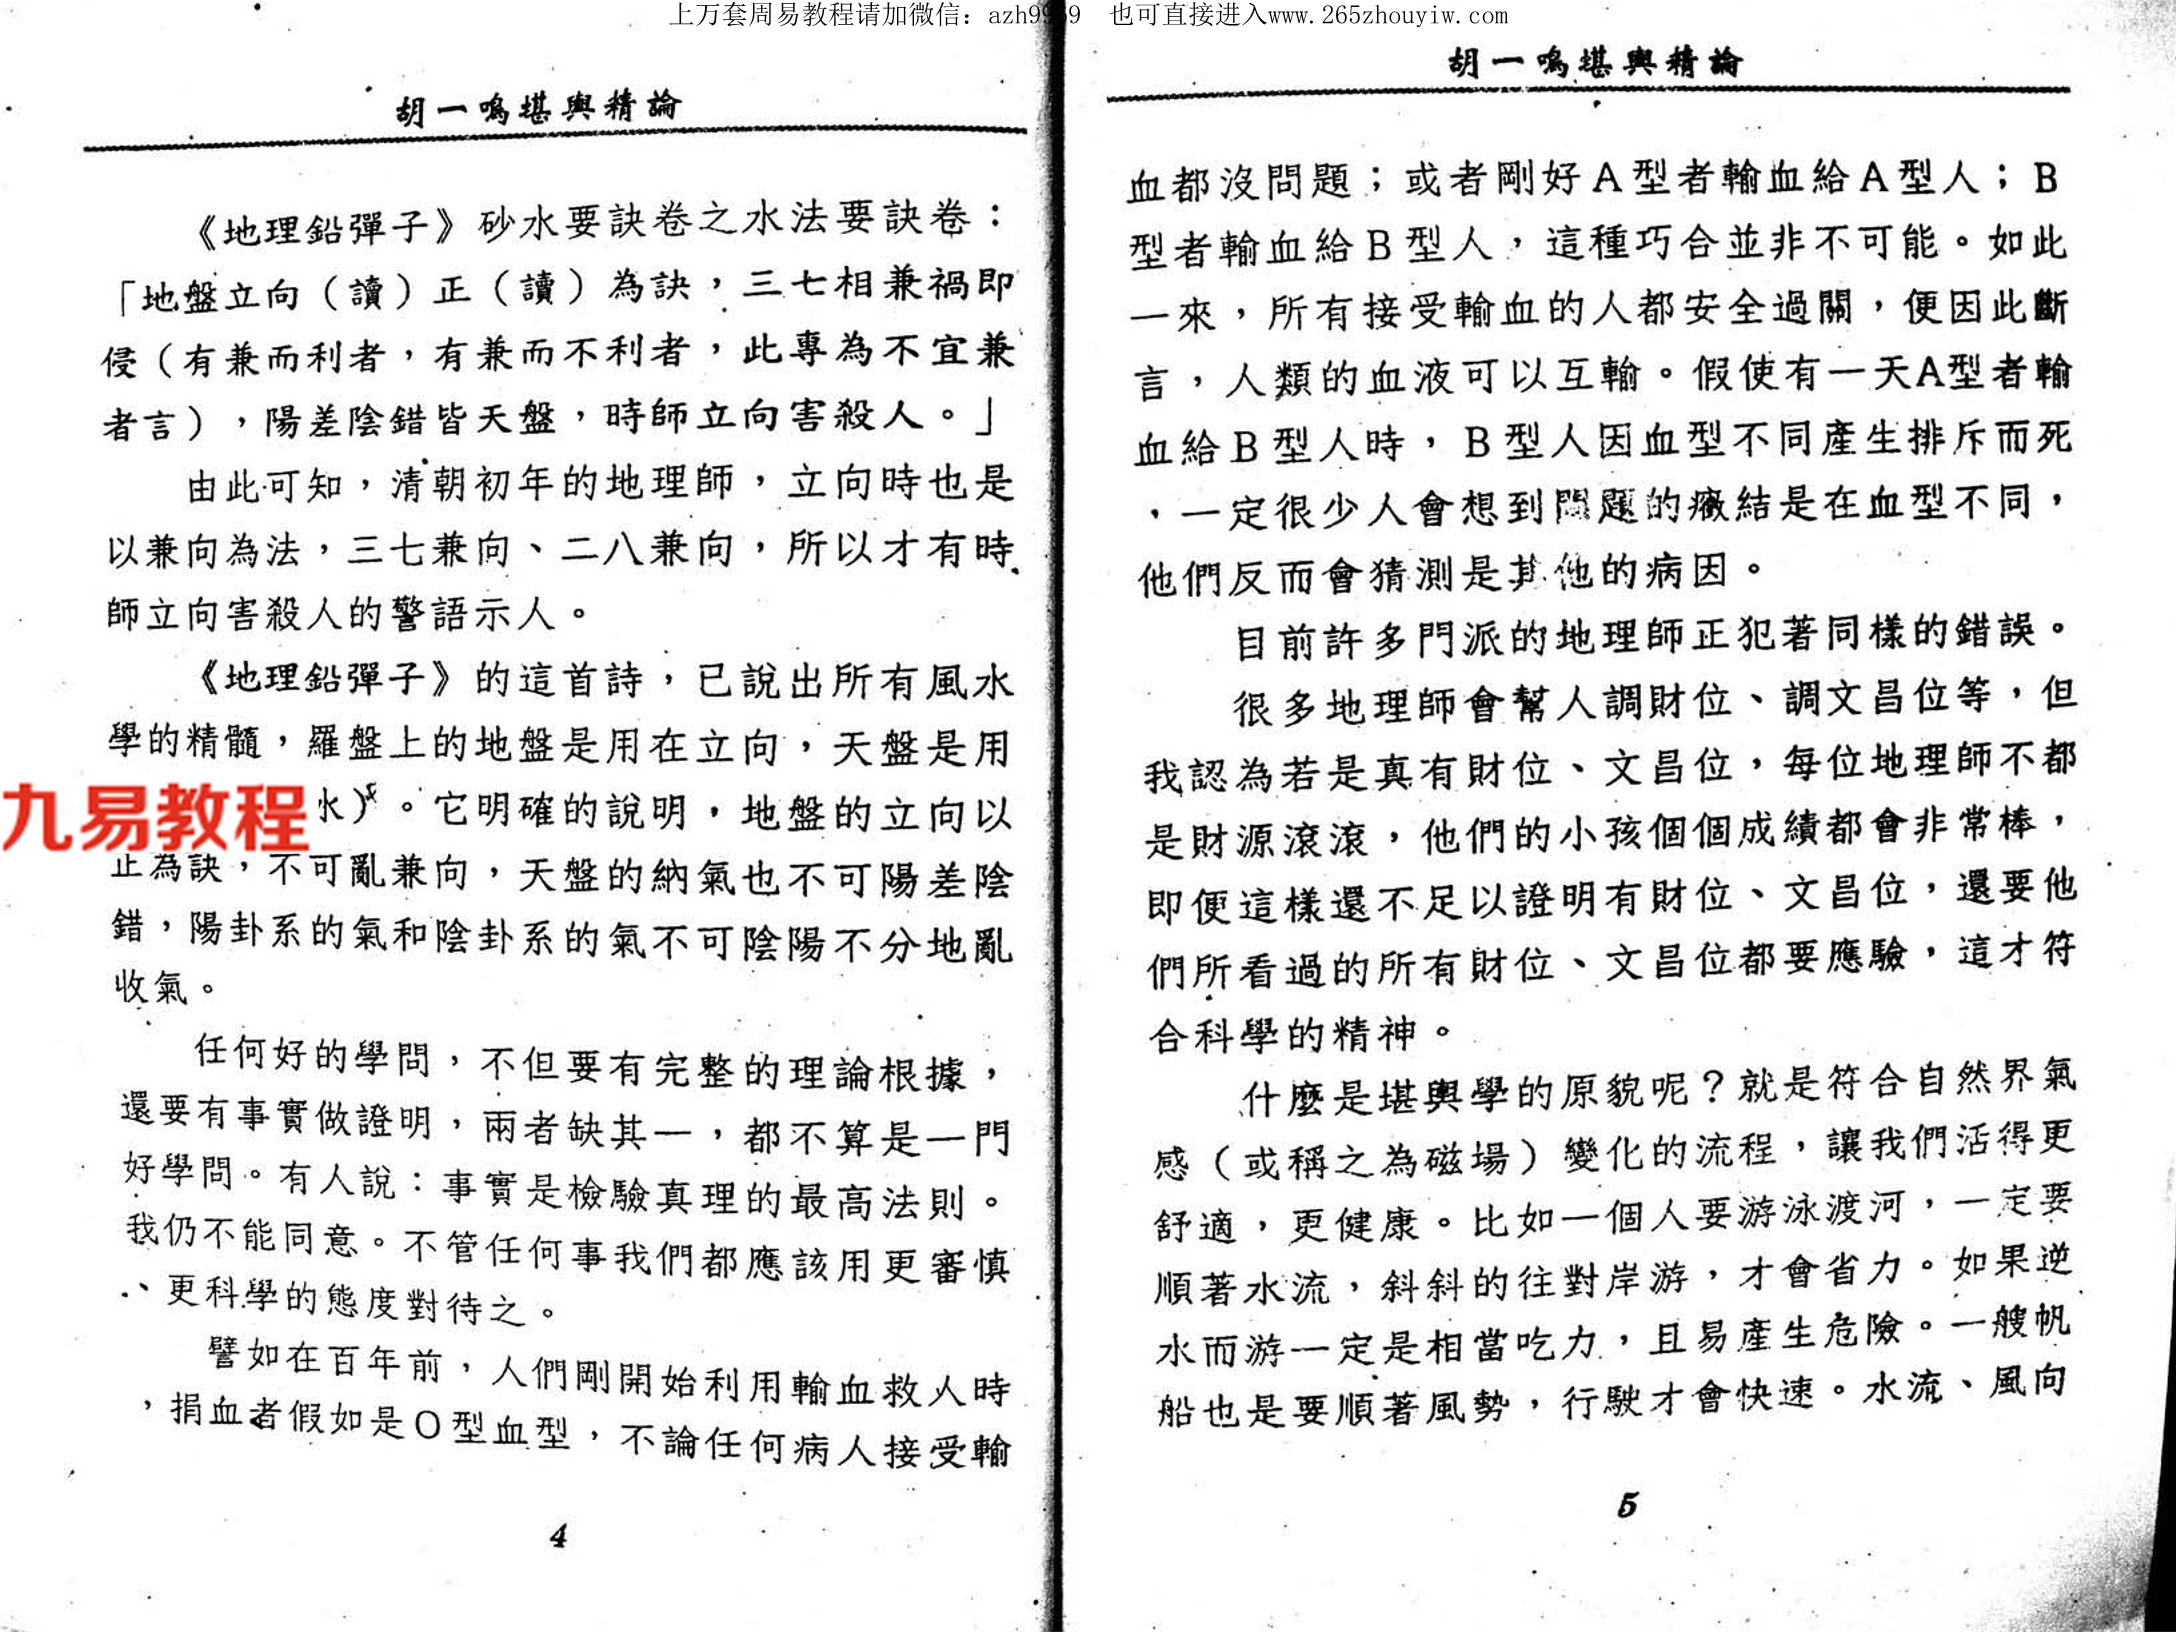 上万套周易教程请加微信：azh9969　也可直接进入www.265zhouyiw.com
胡一鳴堪輿精論
《地理鉛彈子》砂水要訣卷之水法要訣卷：
「地盤立向（讀）正（讀）為訣，三七相兼禍即
侵（有兼而利者，有兼而不利者，此專為不宜兼
者言），陽差陰錯皆天盤，時師立向害殺人。」
由此可知，清朝初年的地理師，立向時也是
以兼向為法，三七兼向、二八兼向，所以才有時
師立向害殺人的警語示人。
《地理鉛彈子》的這首詩，已說出所有風水
學的精髓，羅盤上的地盤是用在立向，天盤是用
九易教程
水）。它明確的說明，地盤的立向以
正為訣，不可亂兼向，天盤的納氣也不可陽差陰
錯，陽卦系的氣和陰卦系的氣不可陰陽不分地亂
收氣。
任何好的學問，不但要有完整的理論根據，
還要有事實做證明，兩者缺其一，都不算是一門
好學問。有人說：事實是檢驗真理的最高法則。
我仍不能同意。不管任何事我們都應該用更審慎
、更科學的態度對待之。
譬如在百年前，人們剛開始利用輸血救人時
，捐血者假如是O型血型，不論任何病人接受輸
4
胡一鳴堪輿精論
血都沒問題；或者剛好A型者輸血給A型人；B
型者輸血給B型人，這種巧合並非不可能。如此
一來，所有接受輸血的人都安全過關，便因此斷
言，人類的血液可以互輸。假使有一天A型者輸
血給B型人時，B型人因血型不同產生排斥而死
，一定很少人會想到問題的癥結是在血型不同，
他們反而會猜測是其他的病因。
目前許多門派的地理師正犯著同樣的錯誤。
很多地理師會幫人調財位、調文昌位等，但
我認為若是真有財位、文昌位，每位地理師不都
是財源滾滾，他們的小孩個個成績都會非常棒，
即便這樣還不足以證明有財位、文昌位，還要他
們所看過的所有財位、文昌位都要應驗，這才符
合科學的精神。
什麼是堪輿學的原貌呢？就是符合自然界氣
感（或稱之為磁場）變化的流程，讓我們活得更
舒適，更健康。比如一個人要游泳渡河，一定要
順著水流，斜斜的往對岸游，才會省力。如果逆
水而游一定是相當吃力，且易產生危險。一艘帆
船也是要順著風勢，行駛才會快速。水流、風向
5